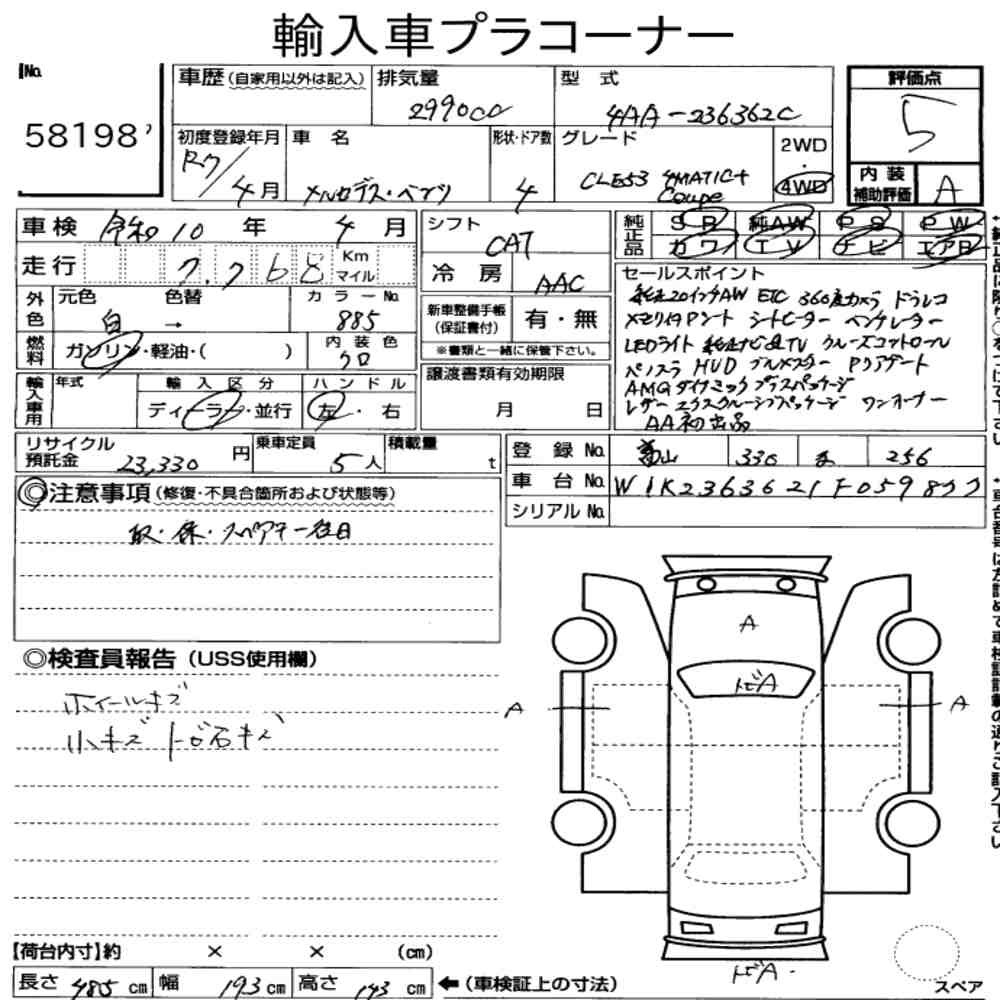 輸入車プラコーナー
No.
58198
車歴 (自家用以外は記入)
排気量
2990cc
型 式
4AA-236362C
評価点
5
初度登録年月
R7/4月
車 名
メルセデス・ベンツ
形状・ドア数
4
グレード
CLE53 4MATIC+
Coupe
2WD
・
4WD
内 装
補助評価
A
車検 令和10 年 4 月
シフト
CAT
純正品
SR 純AW PS PW
カワ TV ナビ エアB
走行 7,768 Km
マイル
冷 房
AAC
セールスポイント
純正20インチAW ETC 360度カメラ ドラレコ
メモリ付Pシート シートヒーター ベンチレーター
LEDライト 純正ナビ地TV クルーズコントロール
パノスラ HUD ブルメスター Pリアゲート
AMGダイナミックプラスパッケージ
レザーエクスクルーシブパッケージ ワンオーナー
AA初出品
外色
元色 色替
白 →
カラーNo.
885
新車整備手帳
(保証書付)
有・無
※書類と一緒に保管下さい。
燃料
ガソリン・軽油・( )
内 装 色
クロ
譲渡書類有効期限
月 日
輸入車用
年式
輸 入 区 分
ディーラー・並行
ハ ン ド ル
左・右
リサイクル
預託金 23,330 円
乗車定員
5人
積載量
t
登 録 No. 富山 330 ま 256
車 台 No. W1K2363621F059877
シリアル No.
◎注意事項 (修復・不具合箇所および状態等)
取・保・スペアキー後日
◎検査員報告 (USS使用欄)
ホイールキズ
小キズ トビ石キズ
A
トビA
A
A
トビA
【荷台内寸】約 × × (cm)
長さ 485 cm 幅 193 cm 高さ 143 cm
←(車検証上の寸法)
スペア